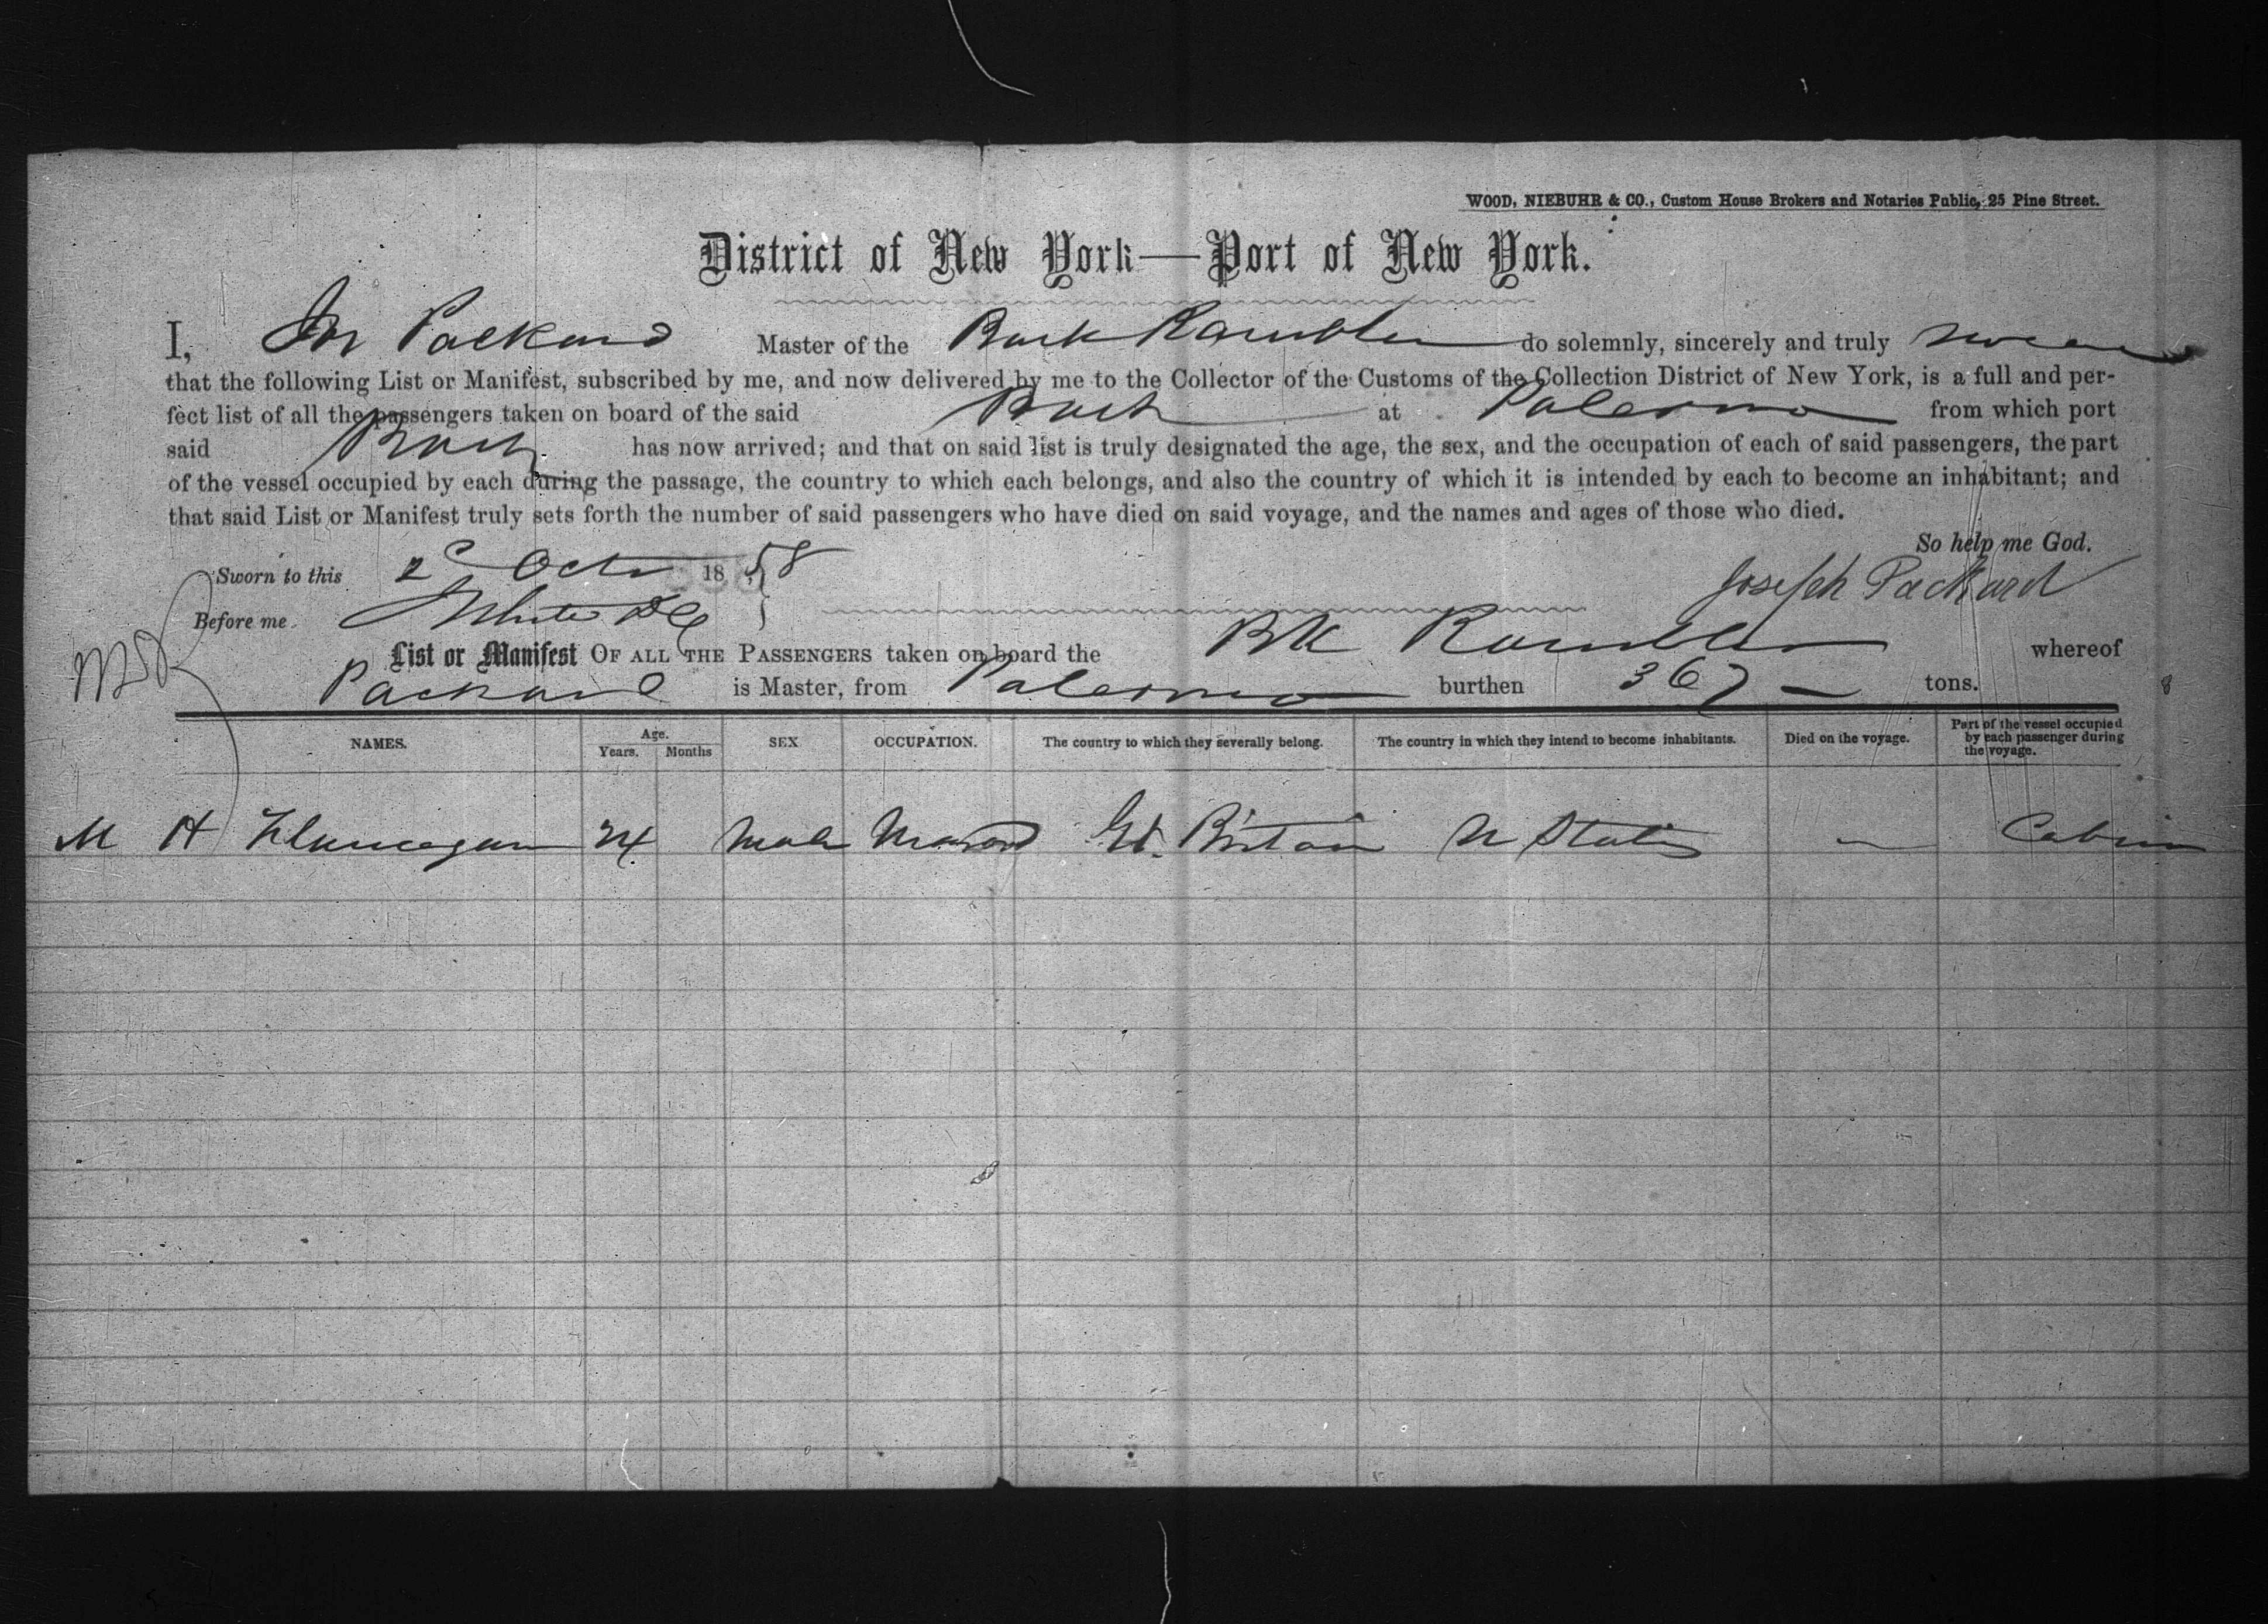 WOOD, NIEBUHR & CO., Custom House Brokers and Notaries Public, 25 Pine Street.
District of New York—Port of New York.
I, Packard Master of the Bark Rambler do solemnly, sincerely and truly swear
that the following List or Manifest, subscribed by me, and now delivered by me to the Collector of the Customs of the Collection District of New York, is a full and per-
fect list of all the passengers taken on board of the said Bark at Palermo from which port
said Bark has now arrived; and that on said list is truly designated the age, the sex, and the occupation of each of said passengers, the part
of the vessel occupied by each during the passage, the country to which each belongs, and also the country of which it is intended by each to become an inhabitant; and
that said List or Manifest truly sets forth the number of said passengers who have died on said voyage, and the names and ages of those who died.
So help me God.
Sworn to this 2d Octr 1858
Joseph Packard
Before me
List or Manifest OF ALL THE PASSENGERS taken on board the Bk Rambler whereof
Packard is Master, from Palermo burthen 367 tons.
NAMES. Age. Years. Months SEX OCCUPATION. The country to which they severally belong. The country in which they intend to become inhabitants. Died on the voyage. Part of the vessel occupied by each passenger during the voyage.
M H Flannegan 24 Male Gt. Britain U States — Cabin